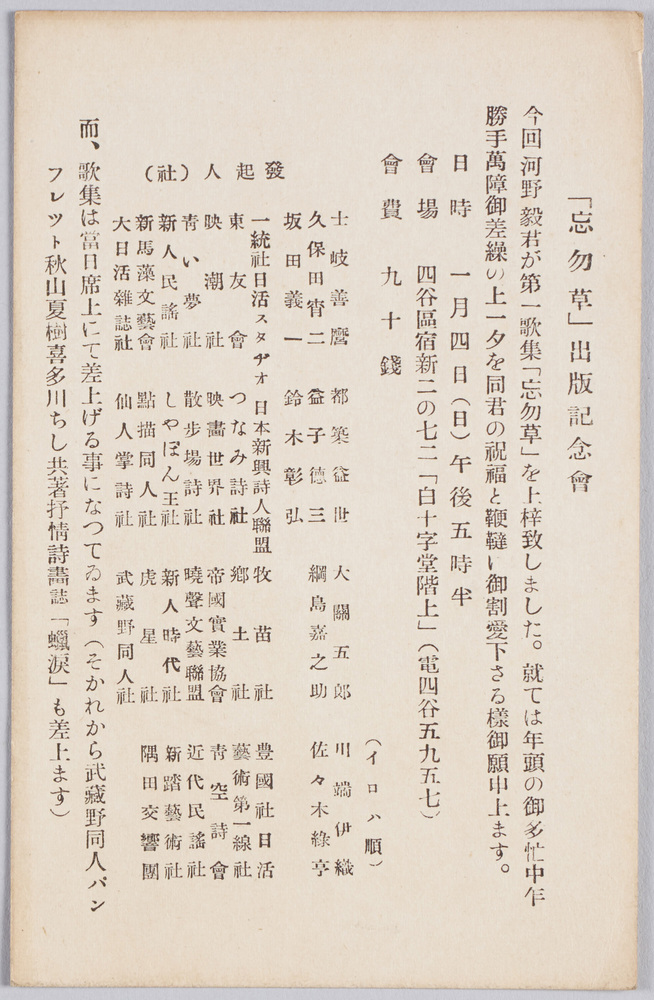 「忘勿草」出版記念會
今回河野毅君が第一歌集「忘勿草」を上梓致しました。就ては年頭の御多忙中乍
勝手萬障御差繰の上一夕を同君の祝福と鞭韃に御割愛下さる樣御願申上ます。
日時　一月四日（日）午後五時半
會場　四谷區宿新二の七二「白十字堂階上」（電四谷五九五七）
會費　九十錢
（イロハ順）
土岐善麿　都築益世　大關五郎　川端伊織
久保田宵二　益子德三　綱島嘉之助　佐々木綠亭
坂田義一　鈴木彰弘
發起人（社）
一統社日活スタヂオ　日本新興詩人聯盟　牧苗社　豊國社日活
東友會　つなみ詩社　鄕土社　藝術第一線社
映潮社　映畫世界社　帝國實業協會　靑空詩會
靑い夢社　散步場詩社　曉聲文藝聯盟　近代民謠社
新人民謠社　しやぼん玉社　新人時代社　新踏藝術社
新馬藻文藝會　點描同人社　虎星社　隅田交響團
大日活雜誌社　仙人掌詩社　武藏野同人社
而、歌集は當日席上にて差上げる事になつてゐます（それから武藏野同人パン
フレット秋山夏樹喜多川ちし共著抒情詩畵誌「蠟淚」も差上ます）